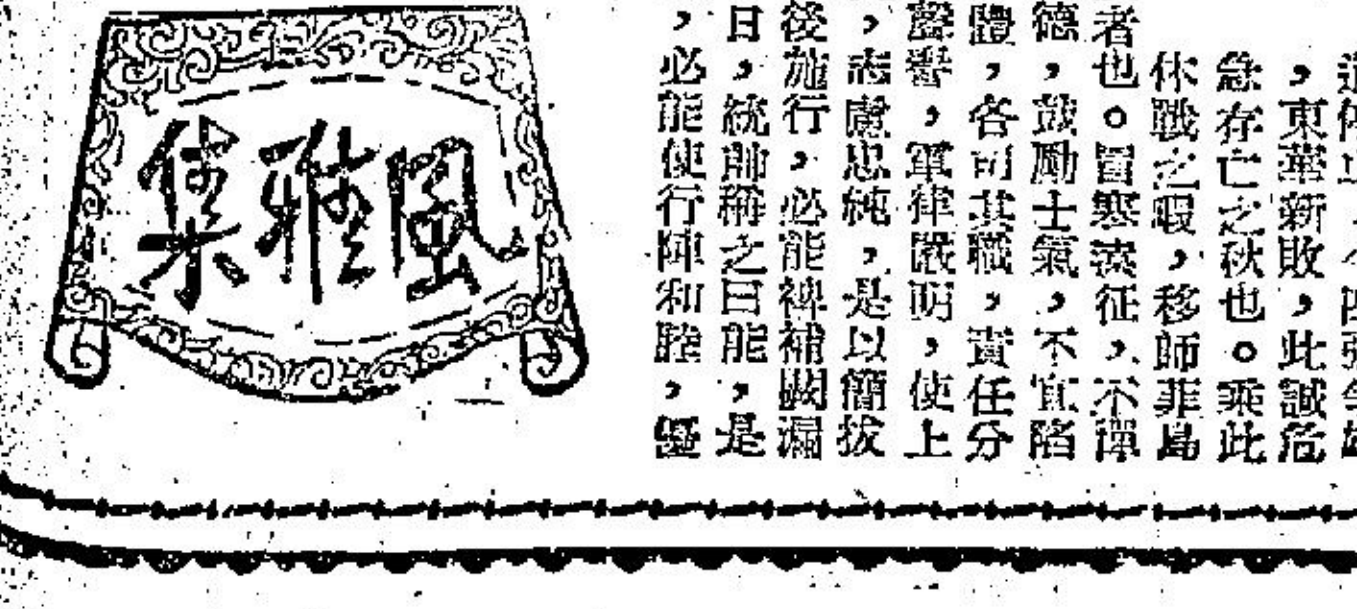 ，東華新敗，此誠危
急存亡之秋也。乘此
休戰之暇，移師菲島
者也。冒寒遠征，不憚
德，鼓勵士氣，不宜陷
體，各司其職，責任分
聲譽，軍律嚴明，使上
，志慮忠純，是以簡拔
後施行，必能裨補闕漏
日，統帥稱之曰能，是
，必能使行陣和睦，優
風雅集